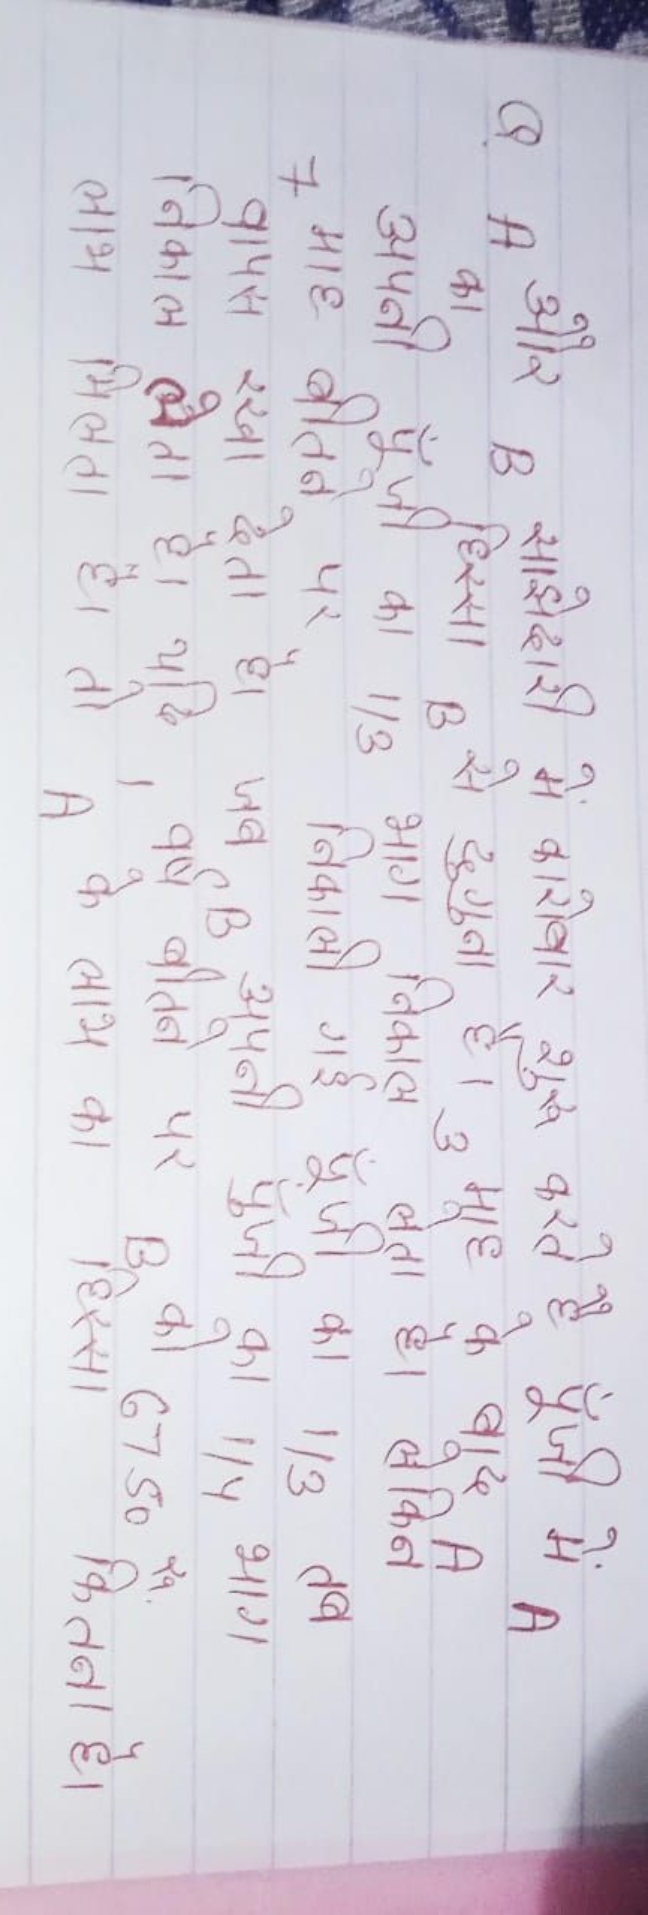 Q. A और B साझेदारी में कारोबार शुरू करते है पूँजी में A
का हिस्सा B से दुगुना है। 3 माह के बाद A
अपनी पूँजी का 1/3 भाग निकाल लता है। लेकिन
7 माह बीतने पर निकाली गई पूँजी का 1/3 तब
वापस रखा देता है। जब B अपनी पूंजी का 1/4 भाग
निकाल लेता है। यदि 1 वर्ष बीतने पर B को 6750 रू.
लाभ मिलता है। तो A के लाभ का हिस्सा कितना है।